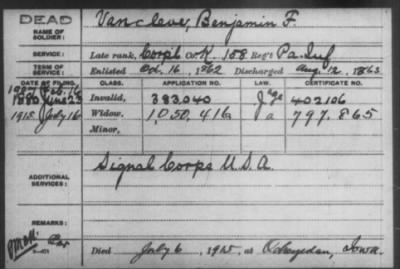 DEAD
NAME OF SOLDIER: Vancleve, Benjamin F.
SERVICE: Late rank, Corp'l Co. K, 158 Reg't Pa. Inf
TERM OF SERVICE: Enlisted Oct. 16, 1862 Discharged Aug. 12, 1863
DATE OF FILING. CLASS. APPLICATION NO. LAW. CERTIFICATE NO.
1907 Feb. 16
1880 June 23 Invalid, 383,040 402106
1915 July 16 Widow, 1,050,416 a 797,865
Minor,
ADDITIONAL SERVICES: Signal Corps U.S.A.
REMARKS:
Died July 6, 1915, at Ocheyedan, Iowa.